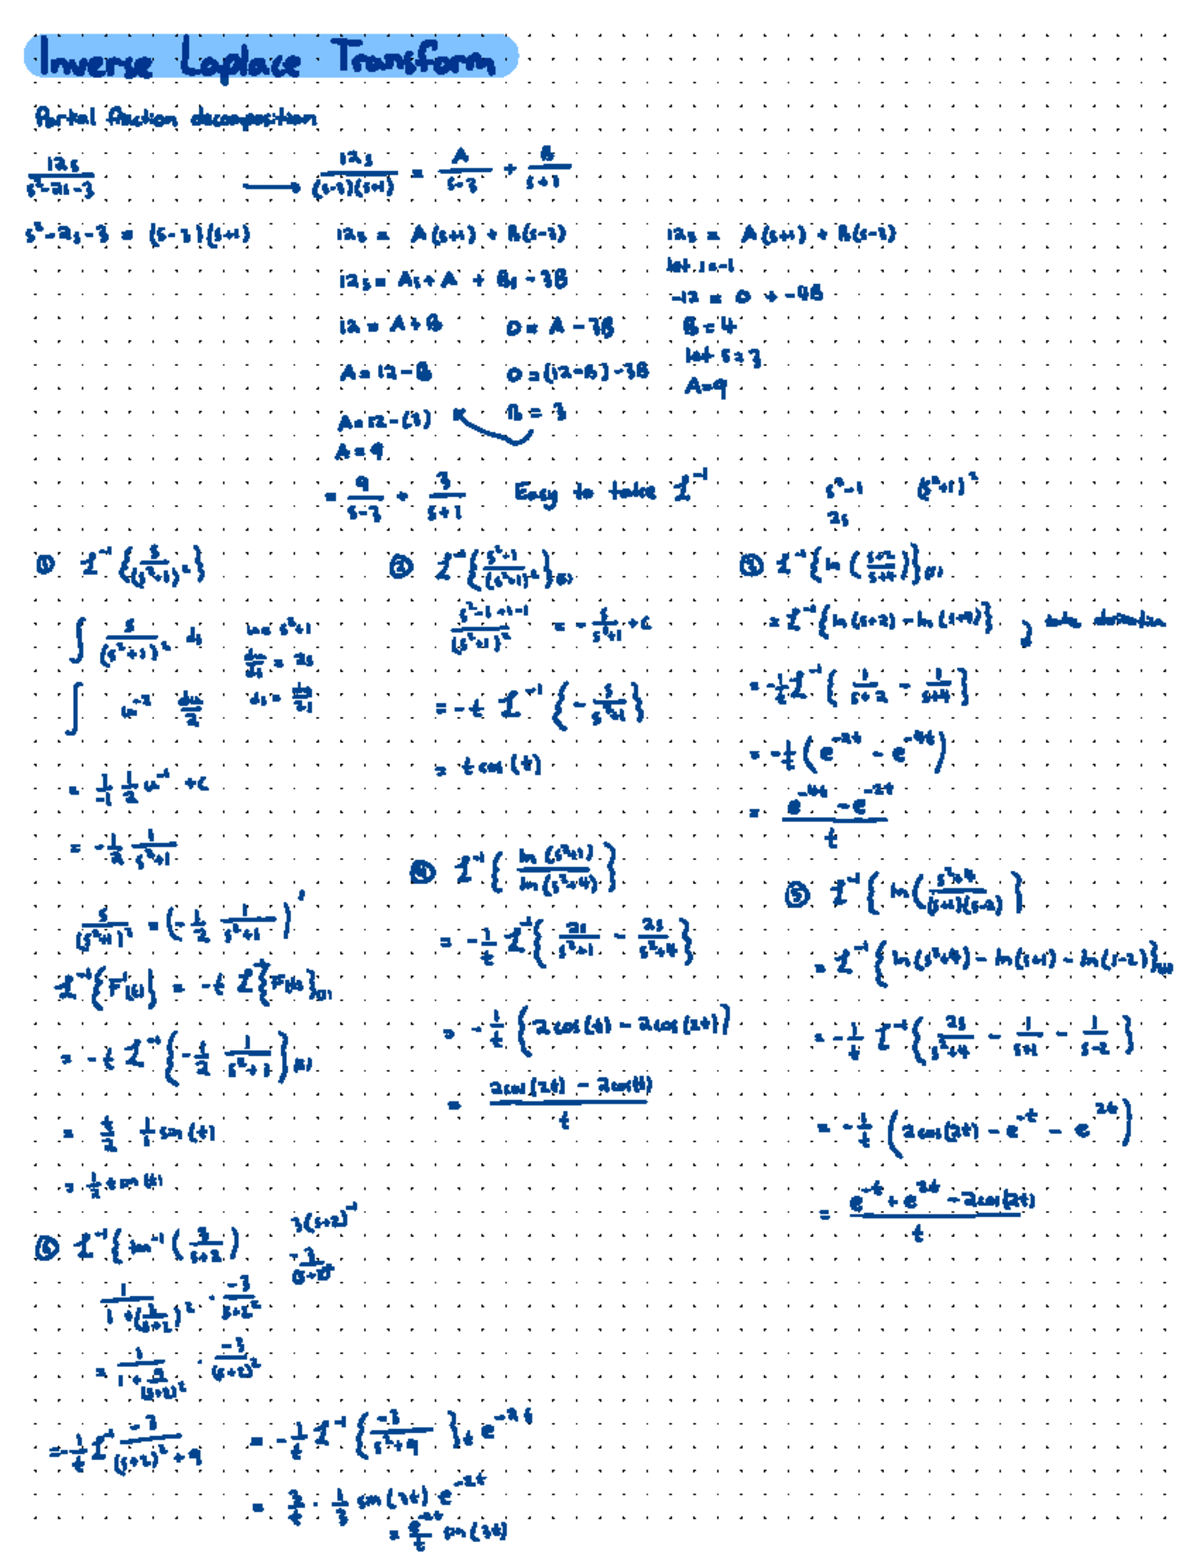 Inverse Laplace Transform
Partial fraction decomposition
12s/(s²-2s-3) → 12s/((s-3)(s+1)) = A/(s-3) + B/(s+1)
s²-2s-3 = (s-3)(s+1)
12s = A(s+1) + B(s-3)
12s = As+A + Bs-3B
12 = A+B    0 = A-3B
A = 12-B    0 = (12-B)-3B
A = 12-(3)    B = 3
A = 9
12s = A(s+1) + B(s-3)
let s=-1
-12 = 0 + -4B
B = 4
let s=3
A=9
= 9/(s-3) + 3/(s+1)    Easy to take ℒ⁻¹
s²-1    (s²+1)²
2s
① ℒ⁻¹{s/(s²+1)²}
∫ s/(s²+1)² ds    u = s²+1
du/ds = 2s
∫ u⁻² du/2    ds = du/2s
= 1/-1 1/2 u⁻¹ + c
= -1/2 1/(s²+1)
s/(s²+1)² = (-1/2 1/(s²+1))'
ℒ⁻¹{F'(s)} = -t ℒ⁻¹{F(s)}(t)
= -t ℒ⁻¹{-1/2 1/(s²+1)}(t)
= t/2 1/1 sin(t)
= 1/2 t sin(t)
② ℒ⁻¹{(s²+1)/(s²+1)²}(t)
(s²-1+1-1)/(s²+1)² = -s/(s²+1) + c
= -t ℒ⁻¹{-s/(s²+1)}
= t cos(t)
③ ℒ⁻¹{ln((s+2)/(s+4))}(t)
= ℒ⁻¹{ln(s+2) - ln(s+4)} take derivative
= -1/t ℒ⁻¹{1/(s+2) - 1/(s+4)}
= -1/t (e^(-2t) - e^(-4t))
= (e^(-4t) - e^(-2t))/t
④ ℒ⁻¹{ln(s²+1)/ln(s²+4)}
= -1/t ℒ⁻¹{2s/(s²+1) - 2s/(s²+4)}
= -1/t {2cos(t) - 2cos(2t)}
= (2cos(2t) - 2cos(t))/t
⑤ ℒ⁻¹{ln((s²+4)/((s+1)(s-2))}
= ℒ⁻¹{ln(s²+4) - ln(s+1) - ln(s-2)}(t)
= -1/t ℒ⁻¹{2s/(s²+4) - 1/(s+1) - 1/(s-2)}
= -1/t (2cos(2t) - e^(-t) - e^(2t))
= (e^(-t) + e^(2t) - 2cos(2t))/t
⑥ ℒ⁻¹{tan⁻¹(3/(s+2))    3(s+2)⁻¹
-3/(s+2)²
1/(1+(3/(s+2))²) · -3/(s+2)²
= 1/(1+9/(s+2)²) · -3/(s+2)²
= -1/t ℒ⁻¹ -3/((s+2)²+9) = -1/t ℒ⁻¹{-3/(s²+9)}t e^(-2t)
= 3/t · 1/3 sin(3t) e^(-2t)
= e^(-2t)/t sin(3t)